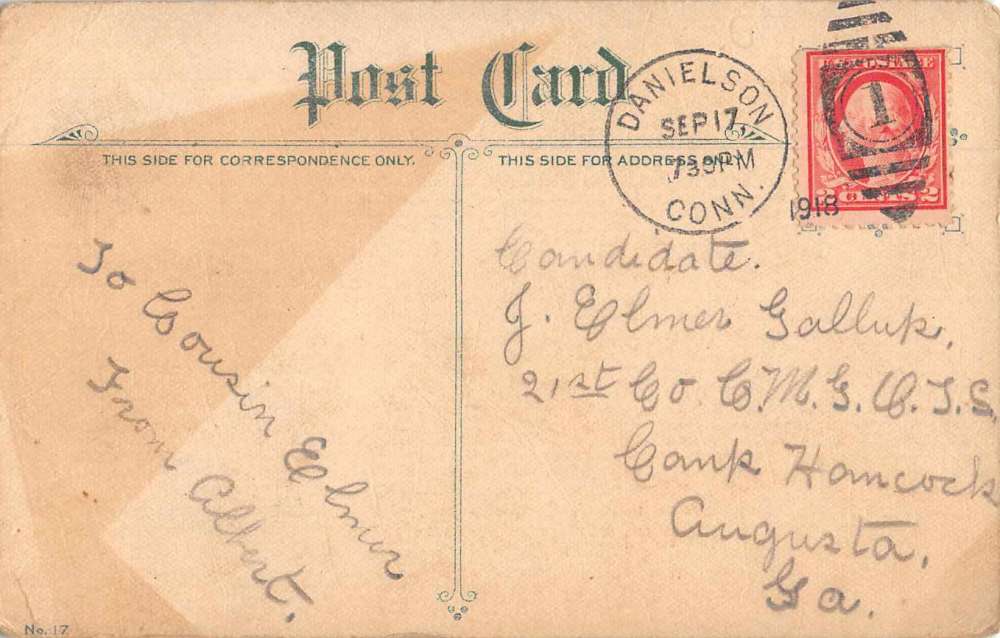 Post Card
THIS SIDE FOR CORRESPONDENCE ONLY.
THIS SIDE FOR ADDRESS ONLY.
DANIELSON
SEP 17
730 PM
CONN.
1918
1
2 CENTS 2
To Cousin Elmer
From Albert.
Candidate.
J. Elmer Gallup.
21st Co C.M.G.O.T.S.
Camp Hancock
Augusta.
Ga.
No. 17